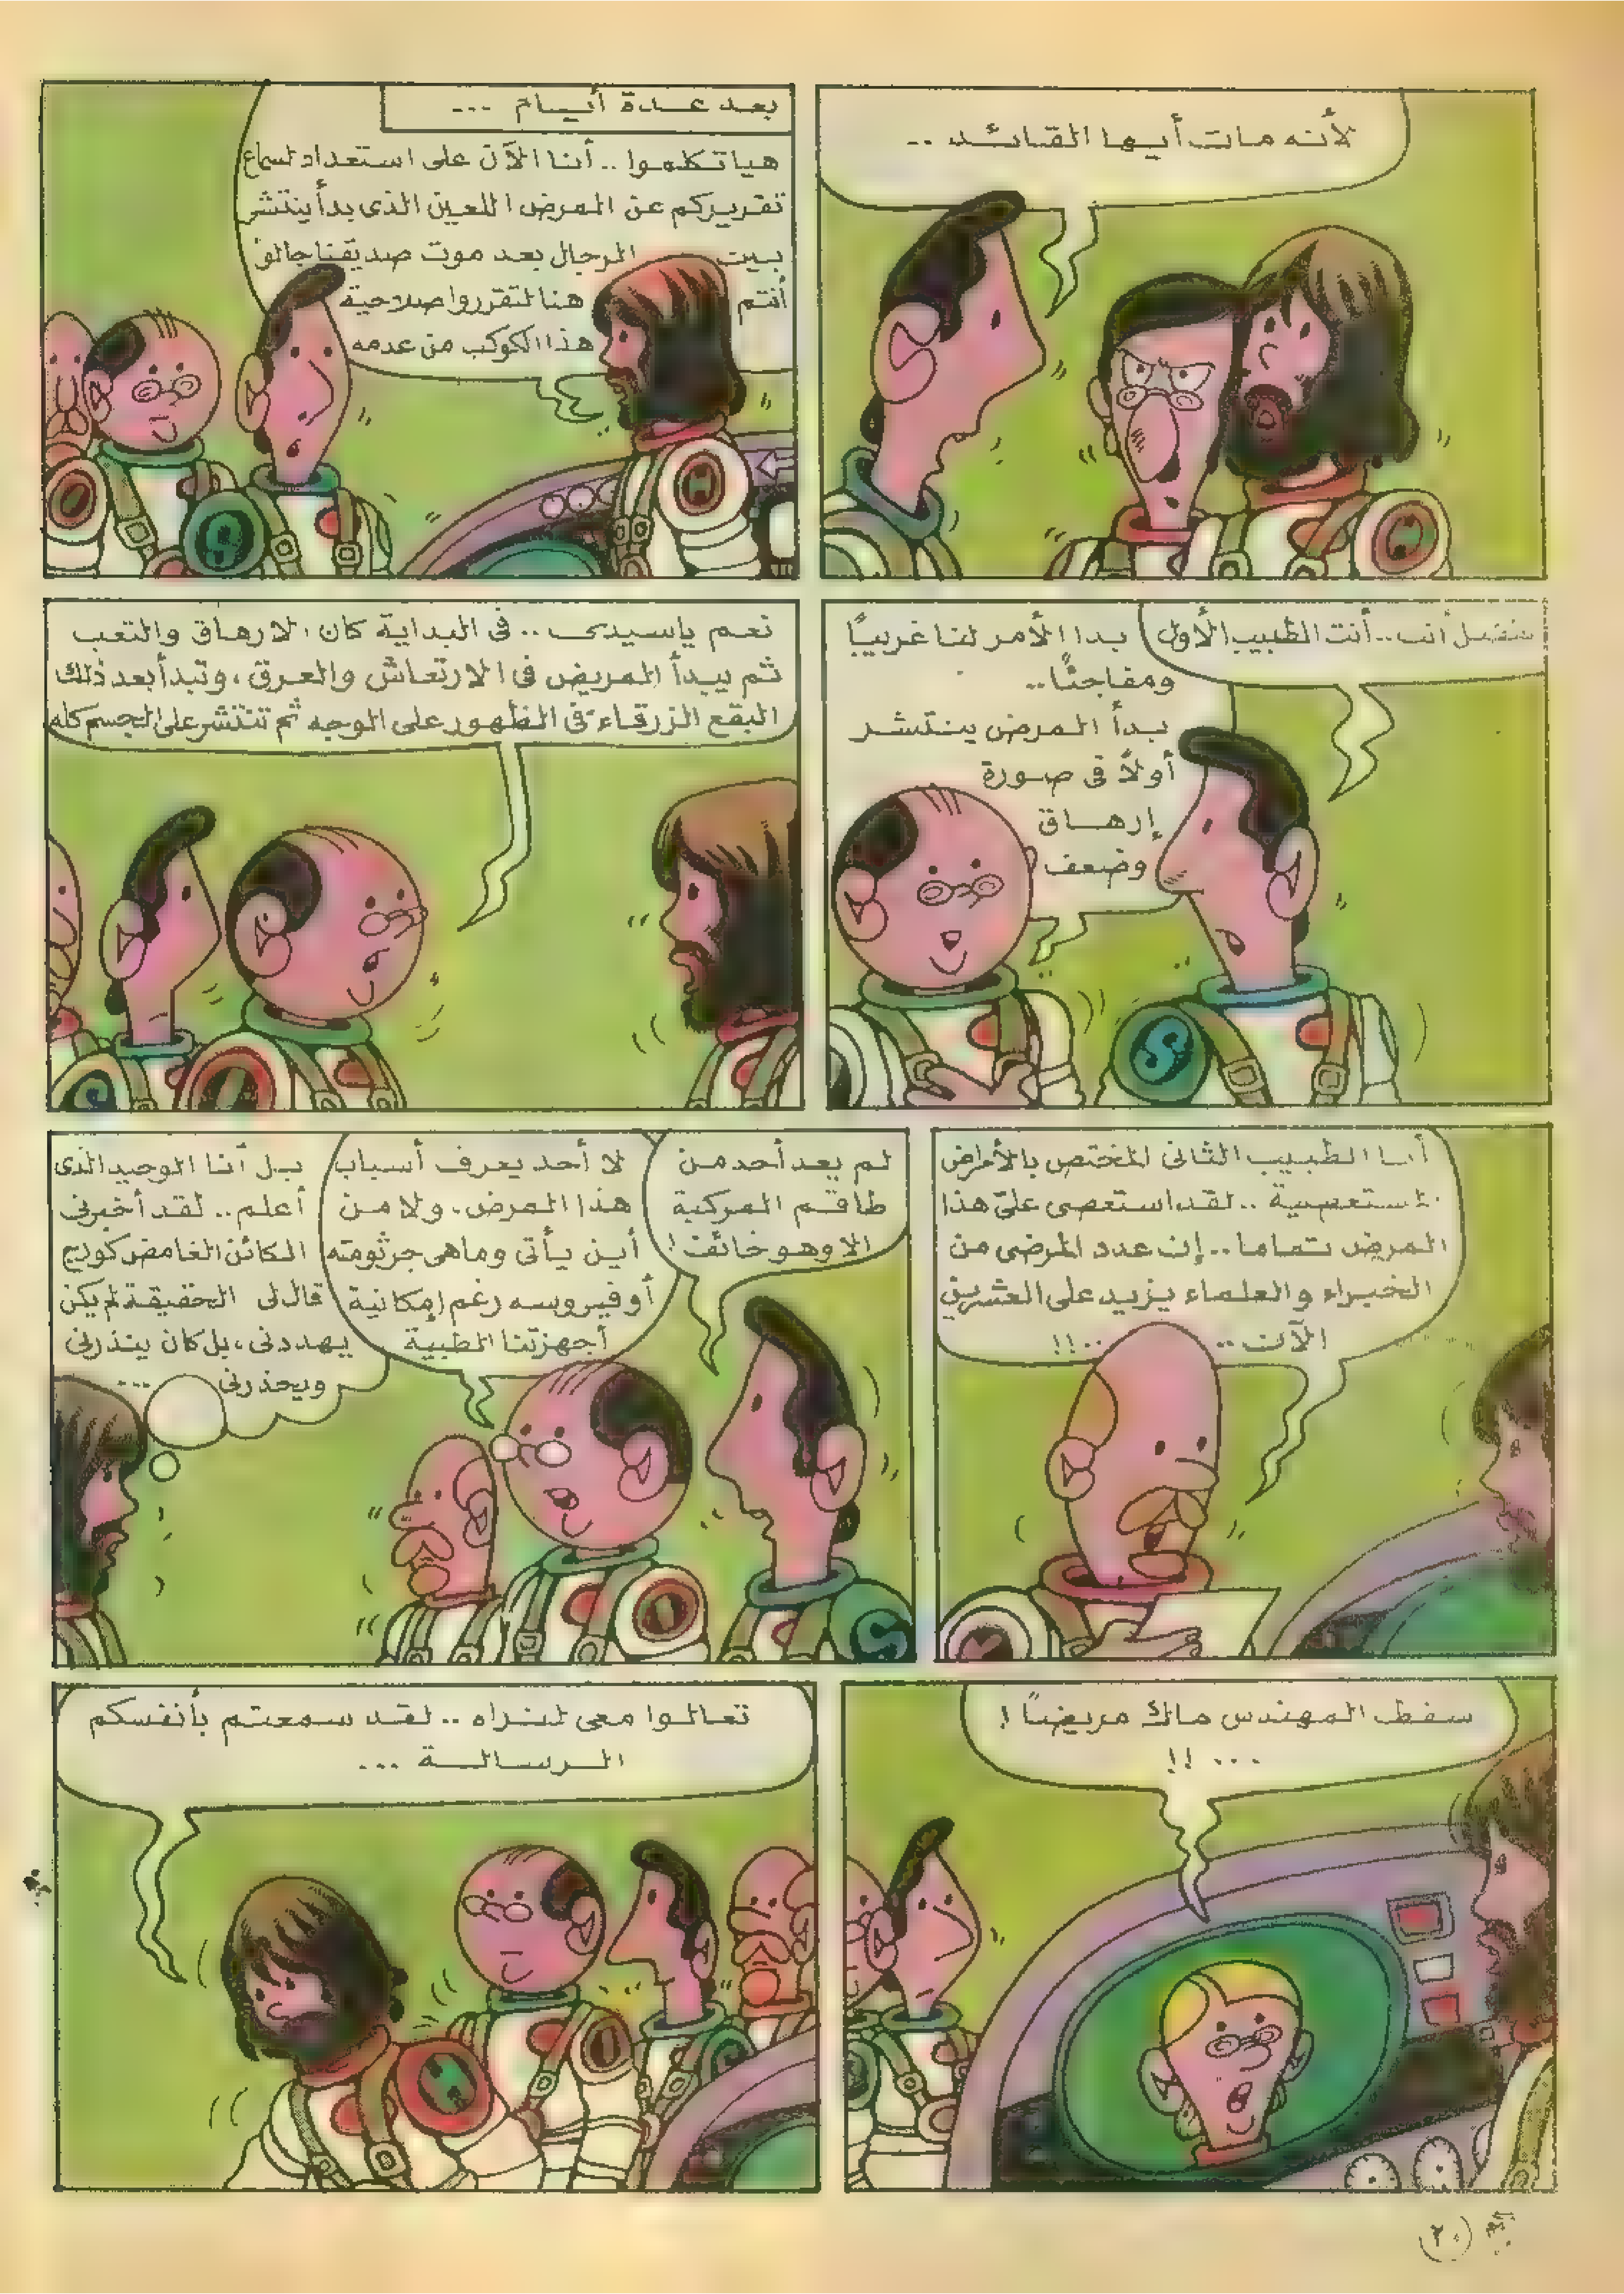 لأنه مات أيها القائد ..
بعد عدة أيام ...
هيا تكلموا .. أنا الآن على استعداد لسماع
تقريركم عن المرض اللعين الذى بدأ ينتشر
بين الرجال بعد موت صديقنا جالو
أنتم هنا لتقرروا صلاحية
هذا الكوكب من عدمه
أنت .. أنت الطبيب الأول
بدا الأمر لنا غريبًا
ومفاجئًا ..
بدأ المرض ينتشر
أولاً فى صورة
إرهاق
وضعف
نعم ياسيدى .. فى البداية كان الارهاق والتعب
ثم يبدأ المريض فى الارتعاش والعرق، وتبدأ بعد ذلك
البقع الزرقاء فى الظهور على الوجه ثم تنتشر على الجسم كله
أما الطبيب الثانى المختص بالأمراض
المستعصية .. لقد استعصى علىّ هذا
المرض تماما .. إن عدد المرضى من
الخبراء والعلماء يزيد على العشرين
الآن .. ..!!
لم يعد أحد من
طاقم المركبة
الا وهو خائف!
لا أحد يعرف أسباب
هذا المرض. ولا من
أين يأتى وماهى جرثومته
أو فيروسه رغم إمكانية
أجهزتنا الطبية
بل أنا الوحيد الذى
أعلم .. لقد أخبرنى
الكائن الغامض كورج
قال لى الحقيقة لم يكن
يهددنى، بل كان ينذرنى
ويحذرنى ...
سقط المهندس ماك مريضًا!
... !!
تعالوا معى لنراه .. لقد سمعتم بأنفسكم
الرسالة ...
٢٠